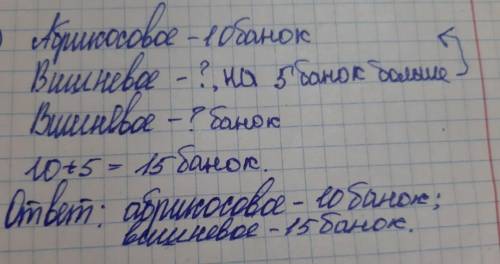 Абрикосовое - 10 банок
Вишневое - ?, на 5 банок больше
Вишнёвое - ? банок
10 + 5 = 15 банок.
Ответ: абрикосовое - 10 банок;
вишневое - 15 банок.